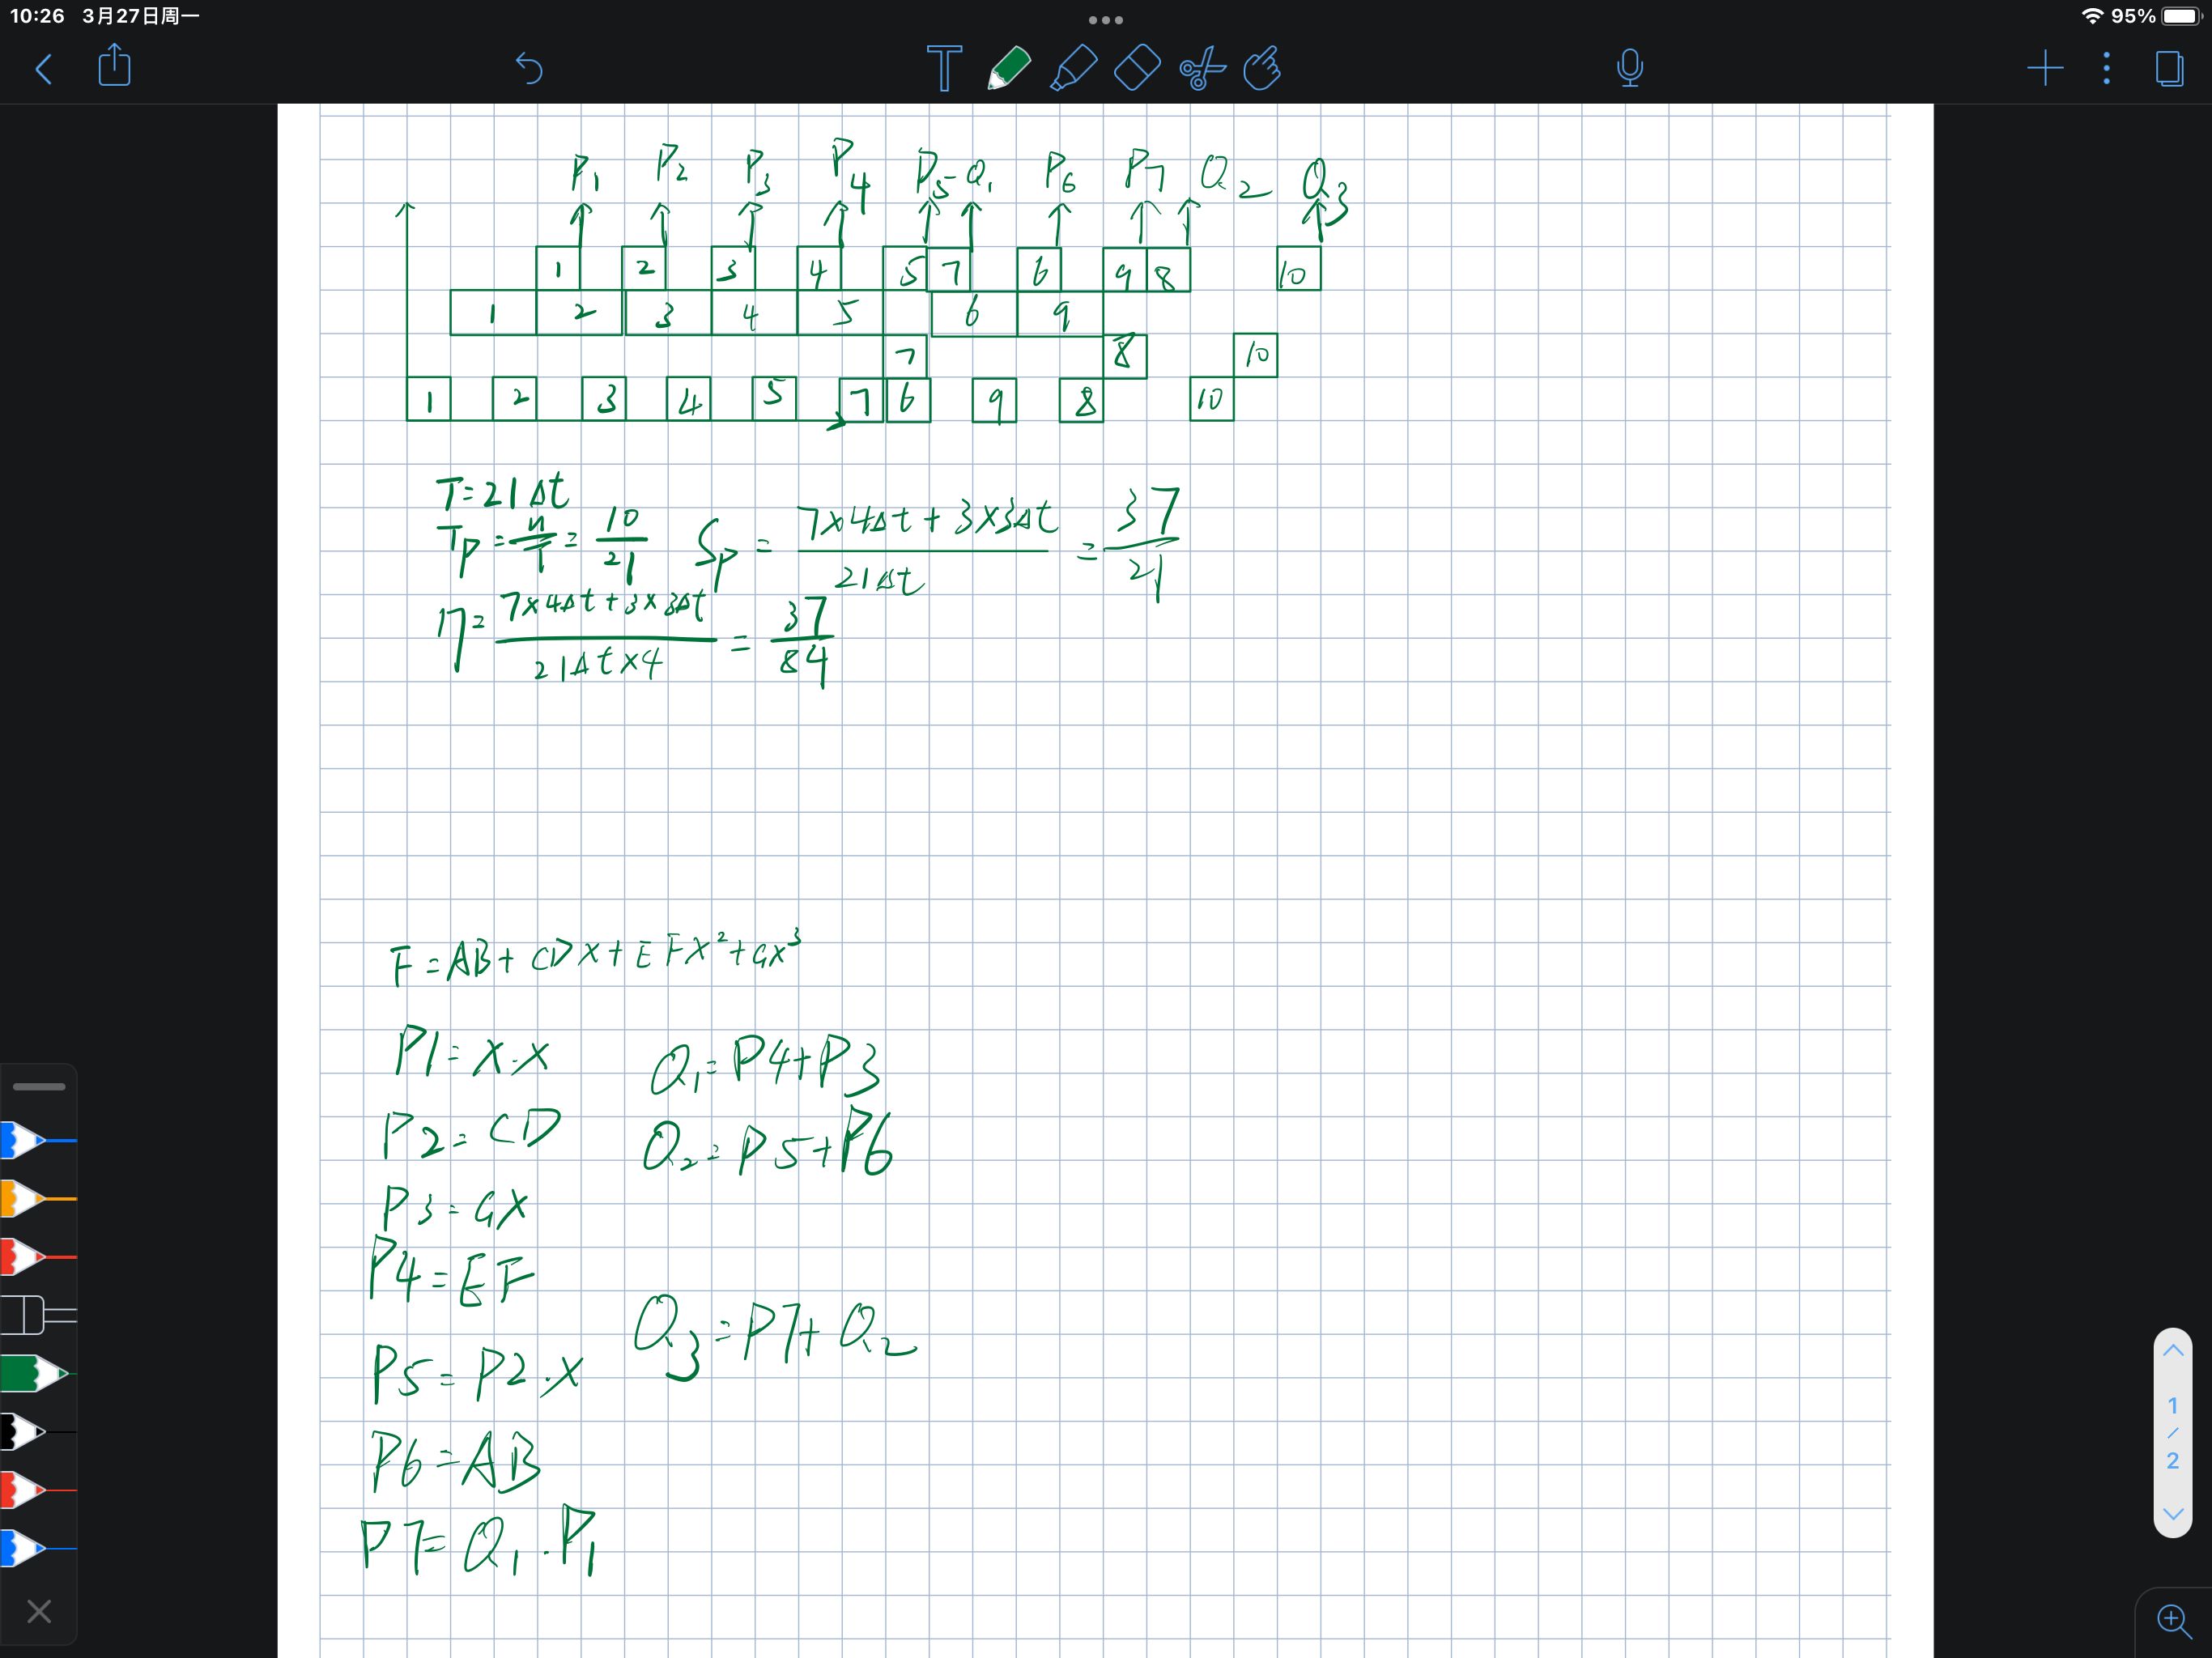 10:26 3月27日周一
95%
P1 P2 P3 P4 P5 Q1 P6 P7 Q2 Q3
1 2 3 4 5 7 6 9 8 10
1 2 3 4 5 6 9
7 8 10
1 2 3 4 5 7 6 9 8 10
T=21Δt
TP = n/T = 10/21 Sp = (7×4Δt + 3×3Δt)/(21Δt) = 37/21
η = (7×4Δt + 3×3Δt)/(21Δt×4) = 37/84
F = AB + CDX + EFX² + GX³
P1 = X·X Q1 = P4+P3
P2 = CD Q2 = P5+P6
P3 = GX
P4 = EF
Q3 = P7+Q2
P5 = P2·X
P6 = AB
P7 = Q1·P1
1
/
2